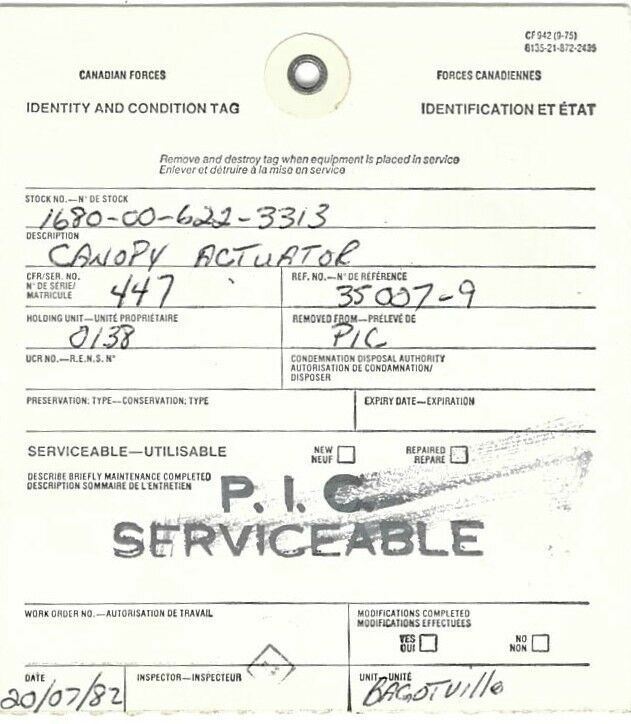 CF 942 (9-75)
8135-21-872-2435
CANADIAN FORCES
FORCES CANADIENNES
IDENTITY AND CONDITION TAG
IDENTIFICATION ET ÉTAT
Remove and destroy tag when equipment is placed in service
Enlever et détruire à la mise en service
STOCK NO.—N° DE STOCK
1680-00-622-3313
DESCRIPTION
CANOPY ACTUATOR
CFR/SER. NO.
N° DE SÉRIE/
MATRICULE
447
REF. NO.—N° DE RÉFÉRENCE
35007-9
HOLDING UNIT—UNITÉ PROPRIÉTAIRE
0138
REMOVED FROM—PRÉLEVÉ DE
PIC
UCR NO.—R.E.N.S. N°
CONDEMNATION DISPOSAL AUTHORITY
AUTORISATION DE CONDAMNATION/
DISPOSER
PRESERVATION: TYPE—CONSERVATION: TYPE
EXPIRY DATE—EXPIRATION
SERVICEABLE—UTILISABLE
NEW
NEUF
REPAIRED
RÉPARÉ
DESCRIBE BRIEFLY MAINTENANCE COMPLETED
DESCRIPTION SOMMAIRE DE L'ENTRETIEN
P.I.C.
SERVICEABLE
WORK ORDER NO.—AUTORISATION DE TRAVAIL
MODIFICATIONS COMPLETED
MODIFICATIONS EFFECTUÉES
YES
OUI
NO
NON
DATE
20/07/82
INSPECTOR—INSPECTEUR
UNIT—UNITÉ
BAGOTVille